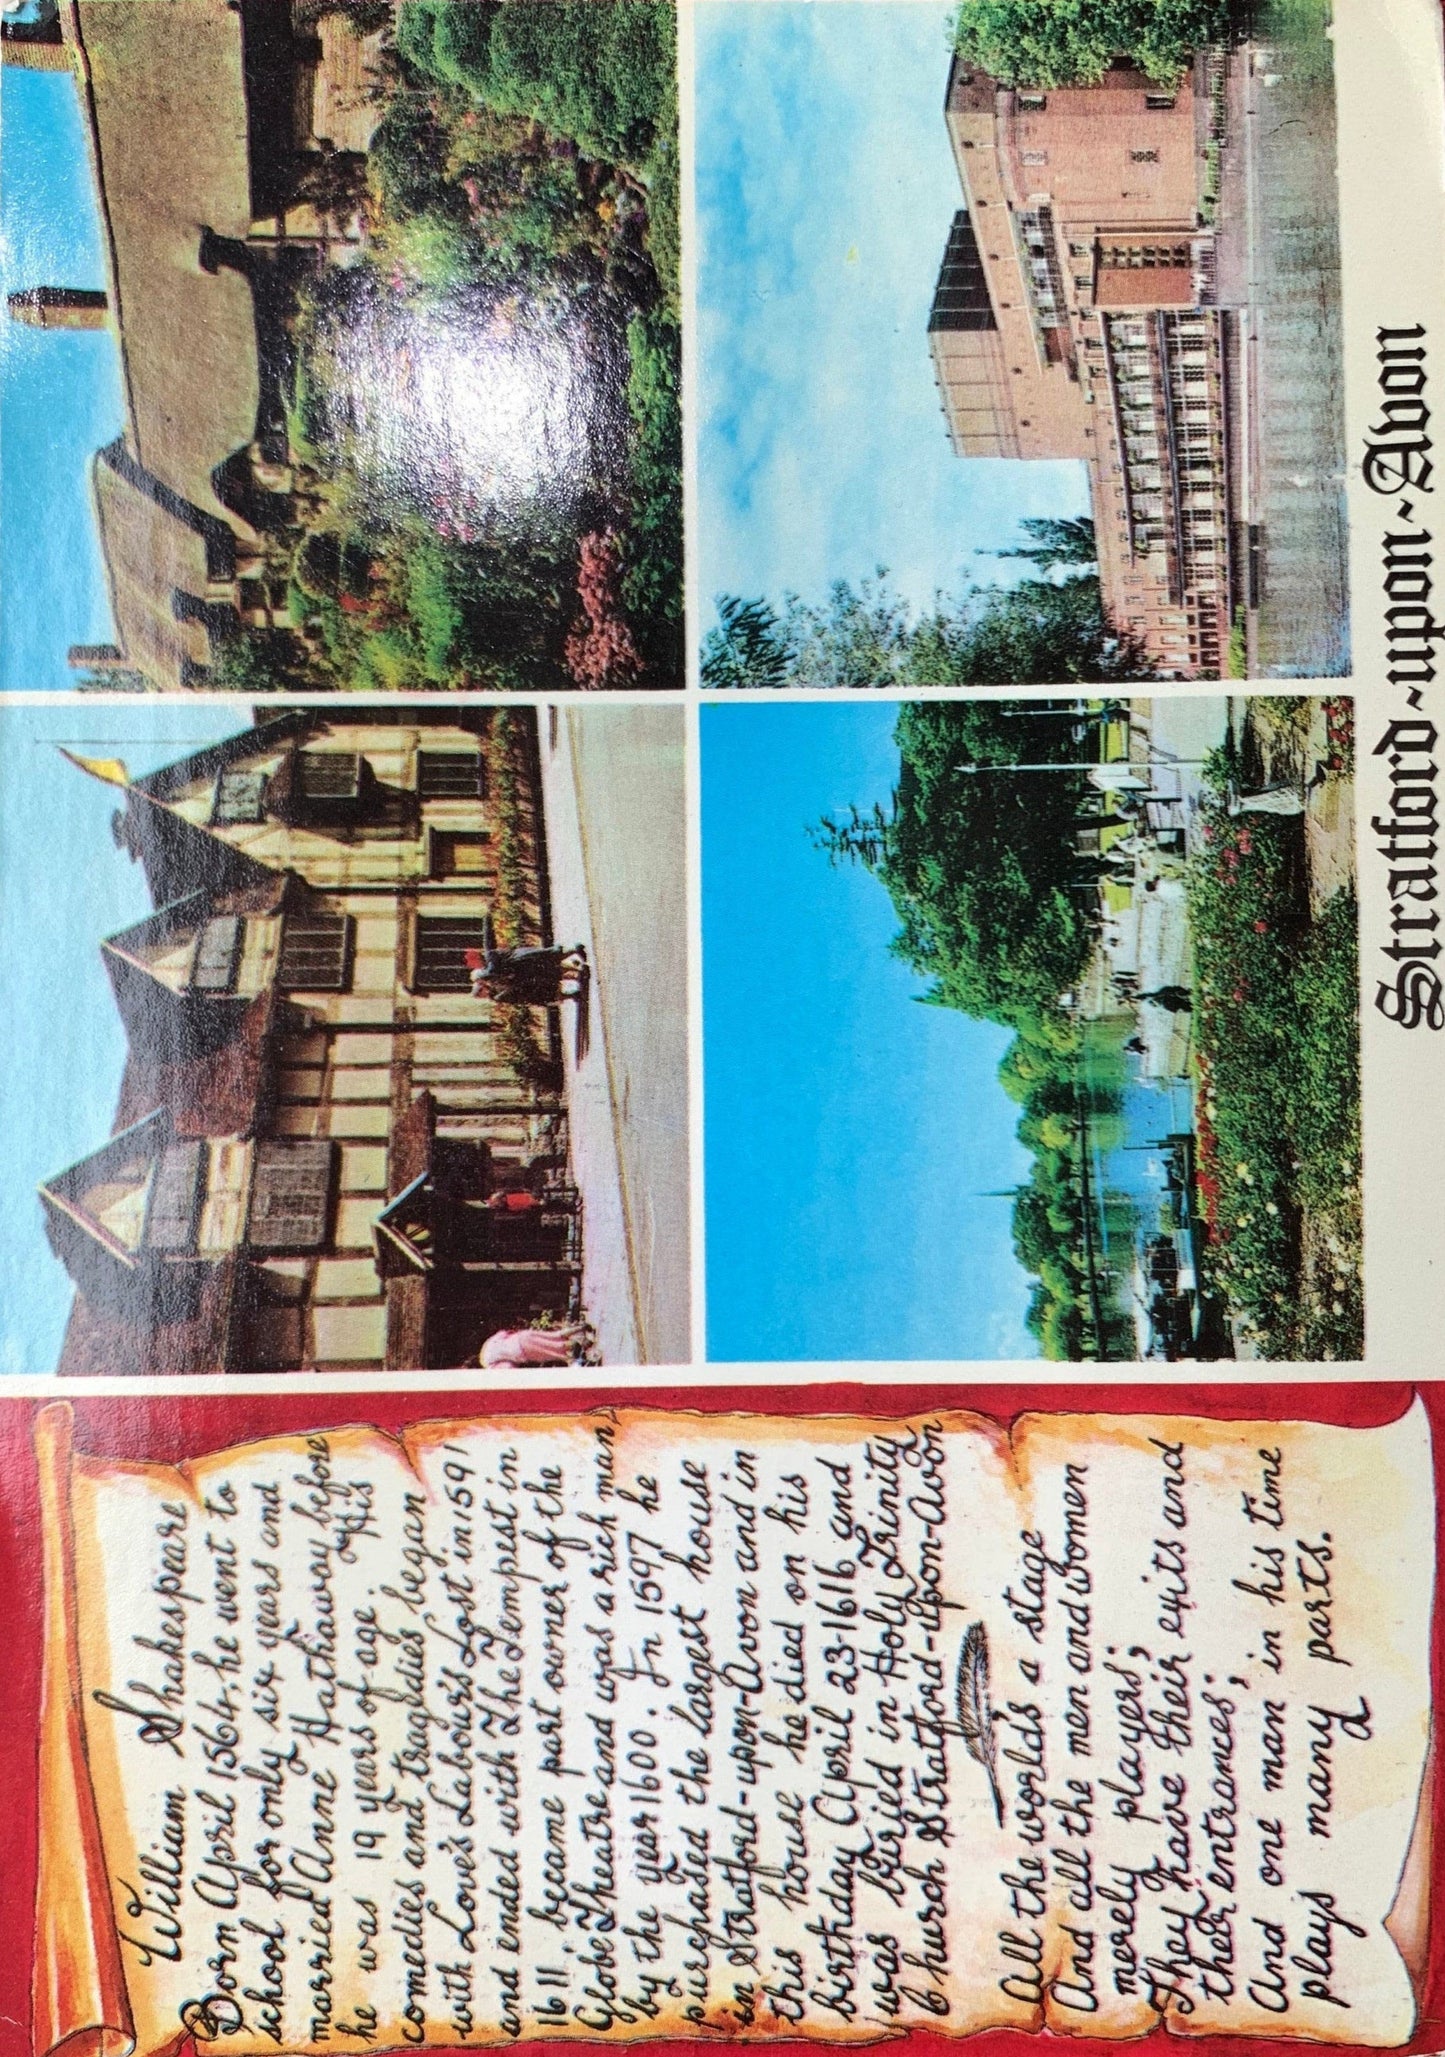 William Shakespeare
Born April 1564, he went to
school for only six years and
married Anne Hathaway before
he was 19 years of age. His
comedies and tragedies began
with Love's Labour's Lost in 1591
and ended with The Tempest in
1611 became part owner of the
Globe Theatre and was a rich man
by the year 1600. In 1597 he
purchased the largest house
in Stratford-upon-Avon and in
this house he died on his
birthday April 23-1616 and
was buried in Holy Trinity
Church Stratford-upon-Avon
All the world's a stage
And all the men and women
merely players;
They have their exits and
their entrances;
And one man in his time
plays many parts.
Stratford-upon-Avon